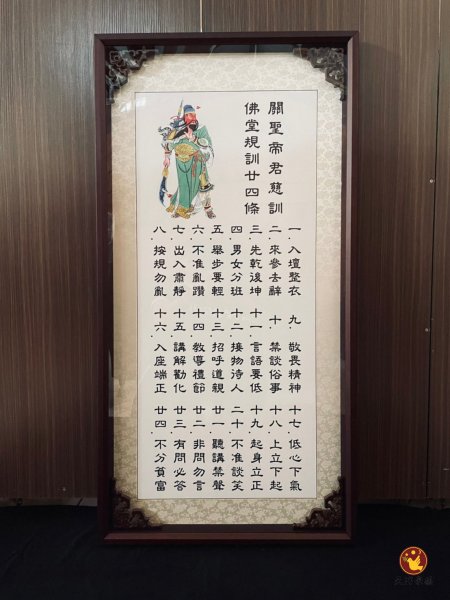 關聖帝君慈訓
佛堂規訓廿四條
一、入壇整衣
二、來參去辭
三、先乾後坤
四、男女分班
五、舉步要輕
六、不准亂鑽
七、出入肅靜
八、按規勿亂
九、敬畏精神
十、禁談俗事
十一、言語要低
十二、接物待人
十三、招呼道親
十四、教導禮節
十五、講解勸化
十六、入座端正
十七、低心下氣
十八、上立下起
十九、起身立正
二十、不准談笑
廿一、聽講禁聲
廿二、非問勿言
廿三、有問必答
廿四、不分貧富